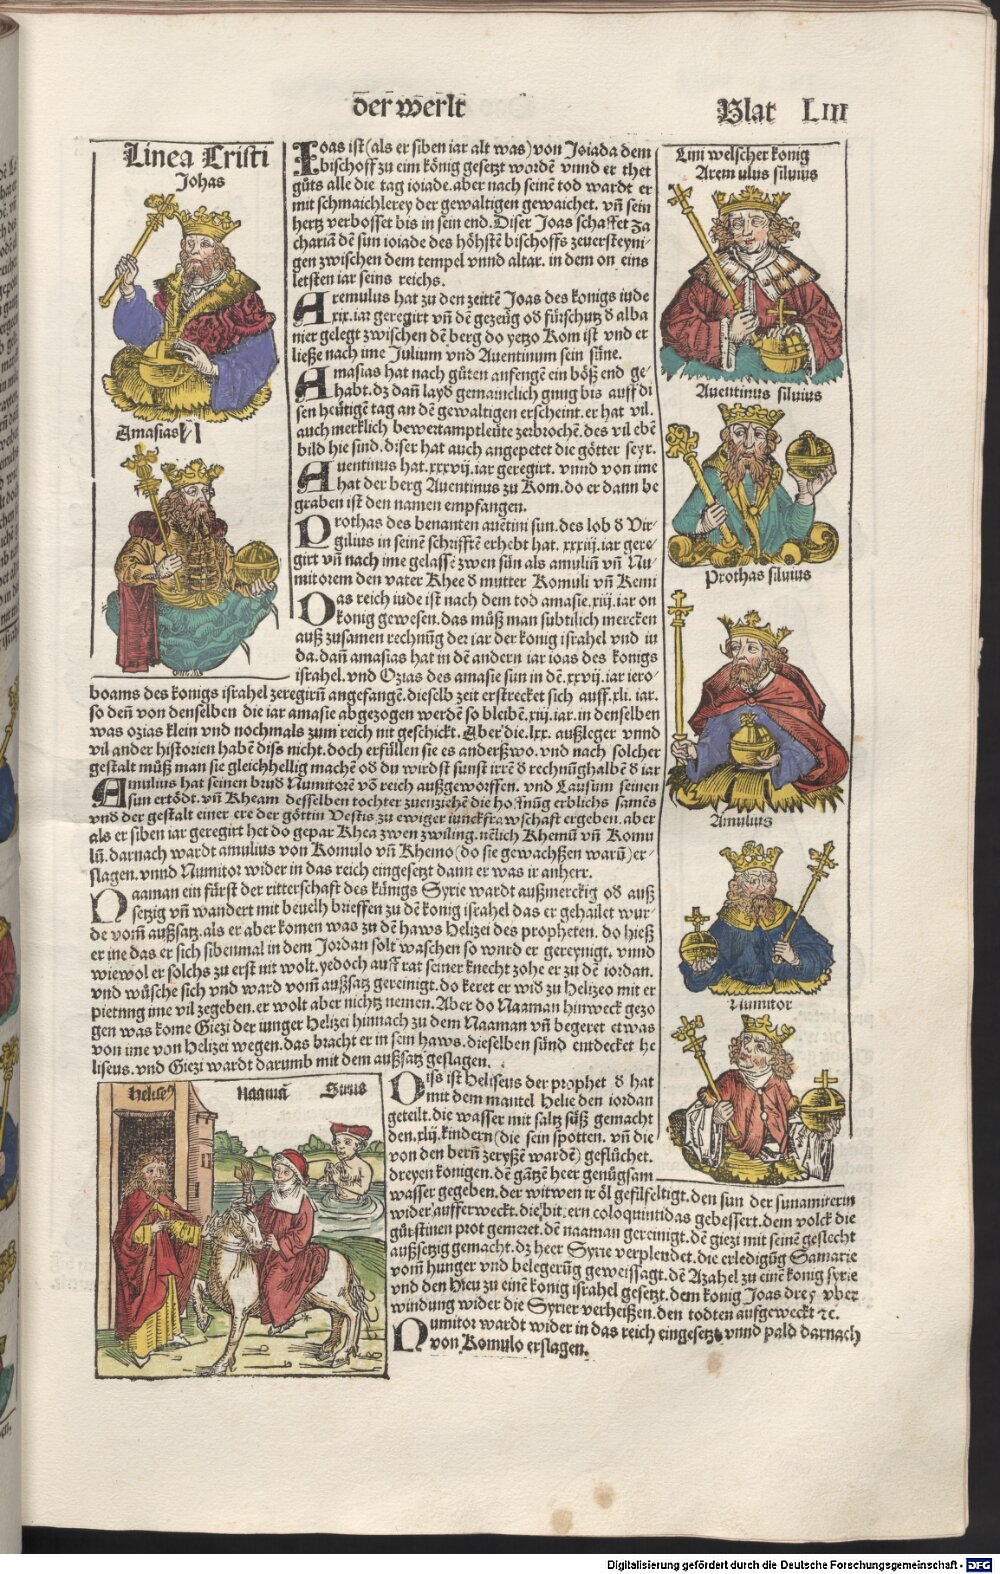 der werlt
Blat LIII
Linea Cristi
Johas
Amasias
Lini welscher konig
Aremulus silvius
Aventinus silvius
Prothas silvius
Amulius
Numitor
Joas ist (als er siben iar alt was) von Joiada dem
bischoff zu eim kőnig gesetzt wordē vnnd er thet
gůts alle die tag ioiade. aber nach seinē tod wardt er
mit schmaichlerey der gewaltigen gewaichet. vn̄ sein
hertz verbosset bis in sein end. Diser Joas schaffet Za
chariā dē sun ioiade des hőhstē bischoffs zeuersteyni-
gen zwischen dem tempel vnnd altar. in dem on eins
letsten iar seins reichs.
Aremulus hat zu den zeittē Joas des konigs iude
xix. iar geregirt vn̄ dē gezeüg od fürschutz d alba
nier gelegt zwischen dē berg do yetzo Rom ist vnd er
ließe nach ime Julium vnd Aventinum sein süne.
Amasias hat nach gůten anfengē ein bőß end ge-
habt. dz dan̄ layd gemainclich gnug bis auff di
sen heütigē tag an dē gewaltigen erscheint. er hat vil.
auch merklich bewert amptleüte zerbrochē. des vil ebē
bild hie sind. diser hat auch angepetet die gőtter seyr.
Aventinus hat. xxxvij. iar geregirt. vnnd von ime
hat der berg Aventinus zu Rom. do er dann be
graben ist den namen empfangen.
Prothas des benanten avētini sun. des lob d Vir-
gilius in seinē schrifftē erhebt hat. xxxiij. iar gere-
girt vn̄ nach ime gelassē zwen sün als amuliū vn̄ Nu-
mitorem den vater Rhee d mutter Romuli vn̄ Remi
Das reich iude ist nach dem tod amasie. xiij. iar on
konig gewesen. das můß man subtilich mercken
auß zusamen rechnūg der iar der konig israhel vnd iu
da. dan̄ amasias hat in dē andern iar ioas des konigs
israhel. vnd Ozias des amasie sun in dē. xxvij. iar iero-
boams des konigs israhel zeregirn̄ angefangē. dieselb zeit erstrecket sich auff. xli. iar.
so den̄ von denselben die iar amasie abgezogen werdē so bleibē. xiij. iar. in denselben
was ozias klein vnd nochmals zum reich nit geschickt. Aber die. lxx. außleger vnnd
vil ander historien habē diss nicht. doch erfüllen sie es anderßwo. vnd nach solcher
gestalt můß man sie gleichhellig machē od du wirdst sunst irrē d rechnūghalbē d iar
Amulius hat seinen brud Numitorē vō reich außgeworffen. vnd Lausum seinen
sun ertődt. vn̄ Rheam desselben tochter zuenziehē die hoffnūg erblichs samēs
vnd der gestalt einer ere der gőttin Vestis zu ewiger iunckfrawschaft ergeben. aber
als er siben iar geregirt het do gepar Rhea zwen zwiling. nēlich Rhemū vn̄ Romu
lū. darnach wardt amulius von Romulo vn̄ Rhemo (do sie gewachßen warū) er-
slagen. vnnd Numitor wider in das reich eingesetzt dann er was ir anherr.
Naaman ein fürst der ritterschaft des künigs Syrie wardt außmerckig od auß
setzig vn̄ wandert mit bevelh brieffen zu dē konig israhel das er gehailet wur-
de vom̄ außsatz. als er aber komen was zu dē haws Helizei des propheten. do hieß
er ine das er sich sibenmal in dem Jordan solt waschen so wurd er gereynigt. vnnd
wiewol er solchs zu erst nit wolt. yedoch auff rat seiner knecht zohe er zu dē iordan.
vnd wüsche sich vnd ward vom̄ außsatz gereinigt. do keret er wid zu Helizeo mit er
pietung ime vil zegeben. er wolt aber nichtz nemen. Aber do Naaman hinweck gezo
gen was kome Giezi der iunger Helizei hinnach zu dem Naaman vn̄ begeret etwas
von ime von Helizei wegen. das bracht er in sein haws. dieselben sünd entdecket he
liseus. vnd Giezi wardt darumb mit dem außsatz geslagen.
Heliseꝰ
Naamā
Sirus
Diss ist Heliseus der prophet d hat
mit dem mantel Helie den iordan
geteilt. die wasser mit saltz süß gemacht
den. xlij. kindern (die sein spotten. vn̄ die
von den bern̄ zeryßē wardē) geflüchet.
dreyen konigen. dē gātzē heer genügsam
wasser gegeben. der witwen ir ől gefilfeltigt. den sun der sunamitterin
wider aufferweckt. die bittern coloquintidas gebessert. dem volck die
gürstinen prot gemeret. dē naaman gereinigt. dē giezi mit seinē geslecht
außsetzig gemacht. dz heer Syrie verplendet. die erledigūg Samarie
vom̄ hunger vnd belegerūg geweissagt. dē Azahel zu einē konig syrie
vnd den Hieu zu einē konig israhel gesetzt. dem konig Joas drey vber
windung wider die Syrier verheißen. den todten aufgeweckt ⁊c.
Numitor wardt wider in das reich eingesetzt vnnd pald darnach
von Romulo erslagen.
Digitalisierung gefördert durch die Deutsche Forschungsgemeinschaft - DFG